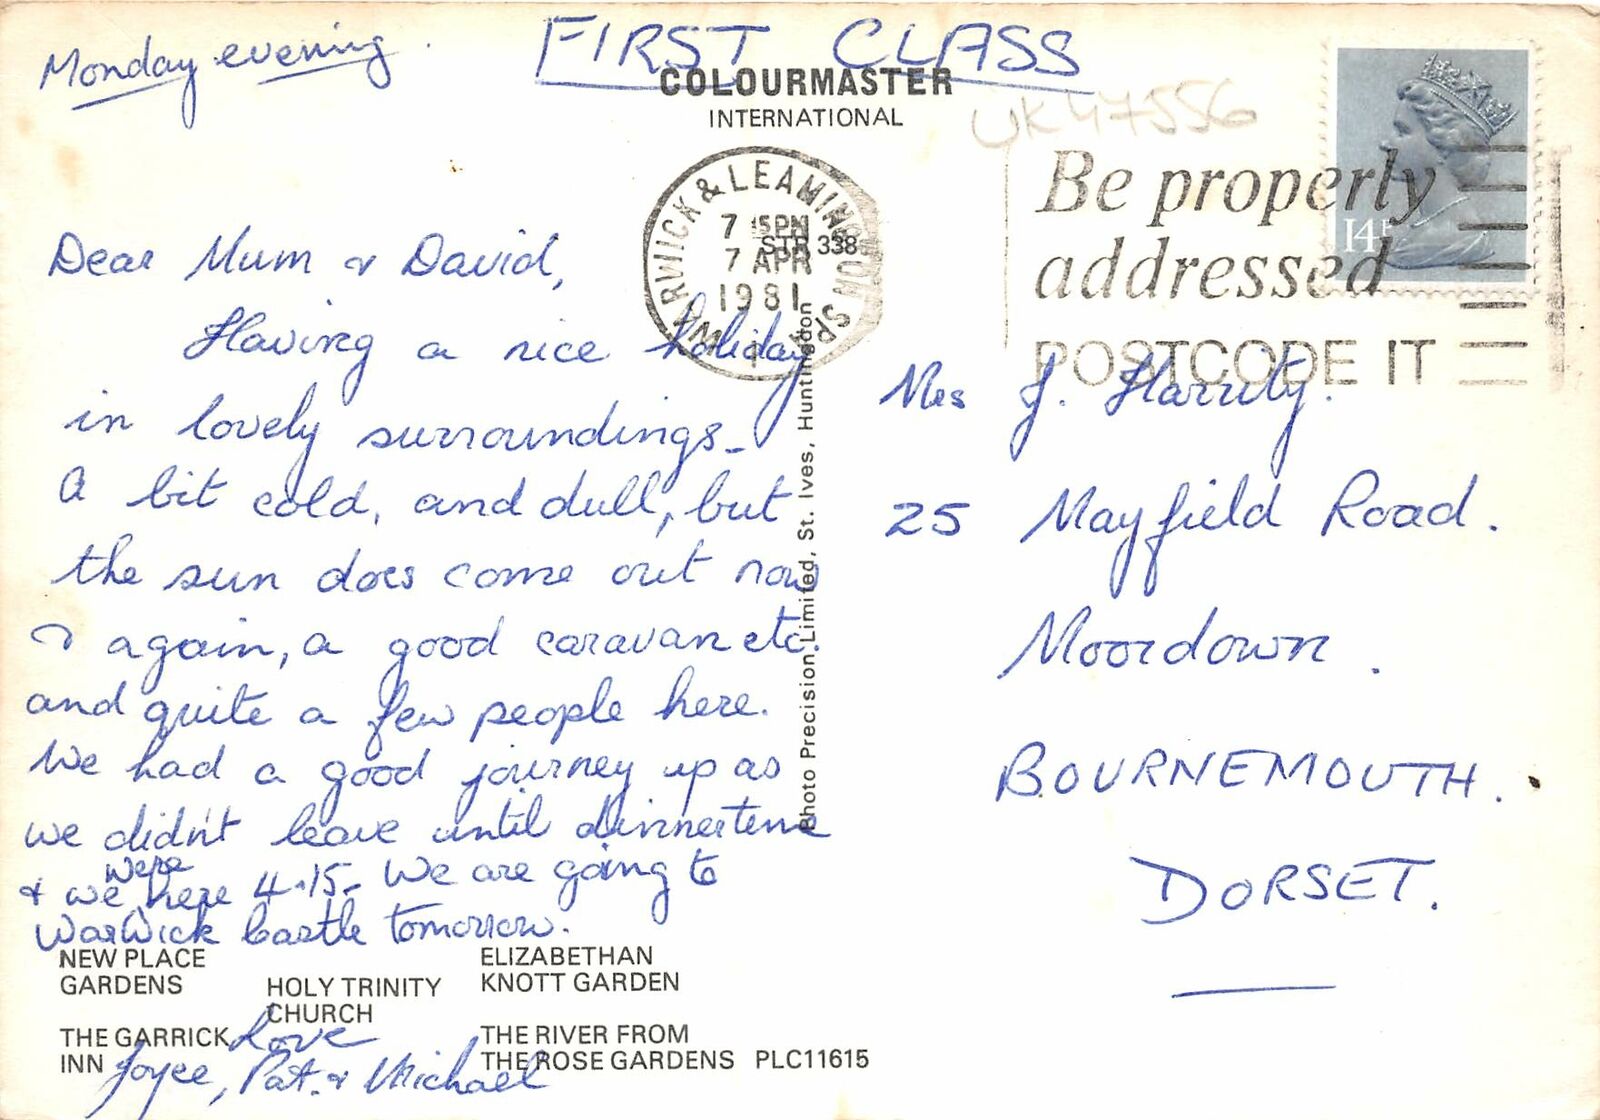 Monday evening.
FIRST CLASS
COLOURMASTER
INTERNATIONAL
UK47556
WARWICK & LEAMINGTON SPA
7 15PM
STR 338
7 APR
1981
1
Be properly
addressed
POSTCODE IT
14P
Dear Mum & David,
Having a nice holiday
in lovely surroundings.
A bit cold, and dull, but
the sun does come out now
& again, a good caravan etc.
and quite a few people here.
We had a good journey up as
we didn't leave until dinnertime
& we were here 4.15. We are going to
Warwick Castle tomorrow.
Love
Joyce, Pat. & Michael
Mrs J. Harrity.
25 Mayfield Road.
Moordown.
BOURNEMOUTH.
DORSET.
Photo Precision Limited, St. Ives, Huntingdon
NEW PLACE
GARDENS
HOLY TRINITY
CHURCH
ELIZABETHAN
KNOTT GARDEN
THE GARRICK
INN
THE RIVER FROM
THE ROSE GARDENS PLC11615